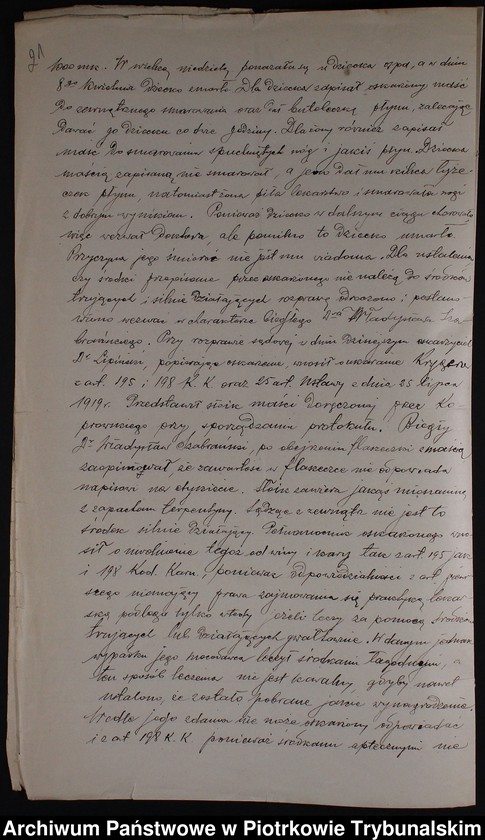 91
1000 mk. W wielką niedzielę, pokazał się u dziecka wpd, a w dniu
8go kwietnia dziecko zmarło. Dla dziecka zapisał oskarżony maść
do zewnętrznego smarowania oraz dał buteleczkę płynu, zalecając
dawać go dziecku co dwie godziny. Dla żony również zapisał
maść do smarowania spuchniętych nóg i jakiś płyn. Dziecka
maścią zapisaną nie smarował, a jeno dał mu kilka łyże-
czek płynu, natomiast żona piła lekarstwo i smarowała nogi
z dobrym wynikiem. Ponieważ dziecko w dalszym ciągu chorowało
więc wezwał doktora, ale pomimo to dziecko umarło.
Przyczyna jego śmierci nie jest mu wiadoma. Dla ustalenia
czy środki przepisane przez oskarżonego nie należą do środków
trujących i silnie działających rozprawę odroczono i postano-
wiono wezwać w charakterze biegłego D-ra Władysława Sza-
brańskiego. Przy rozprawie sądowej w dniu dzisiejszym oskarżyciel
Dr Lipiński, popierając oskarżenie, wnosił o ukaranie Krygera
z art. 195 i 198 K.K. oraz 25 art. Ustawy z dnia 25 lipca
1919 r. Przedstawił słoik maści doręczony przez Ko-
prowskiego przy sporządzaniu protokułu. Biegły
Dr Władysław Szabrański, po obejrzeniu flaszeczki z maścią
zaopinjował, że zawartość w flaszeczce nie odpowiada
napisowi na etykiecie. Słoik zawiera jakąś mieszaninę
z zapachem terpentyny. Sądząc z zewnątrz nie jest to
środek silnie działający. Pełnomocnik oskarżonego wno-
sił o uwolnienie tegoż od winy i kary tak z art. 195 jak
i 198 Kod. Karn., ponieważ odpowiedzialności z art. pierw-
szego niemający prawa zajmowania się praktyką lekar-
ską podlega tylko wtedy jeżeli leczy za pomocą środków
trujących lub działających gwałtownie. W danym jednak
wypadku jego mocodawca leczył środkami łagodnemi, a
ten sposób leczenia nie jest karalny, gdyby nawet
ustalono, że zostało pobrane jakie wynagrodzenie.
Wedle jego zdania nie może oskarżony odpowiadać
i z art. 198 K.K. ponieważ środkami aptecznymi nie
Archiwum Państwowe w Piotrkowie Trybunalskim